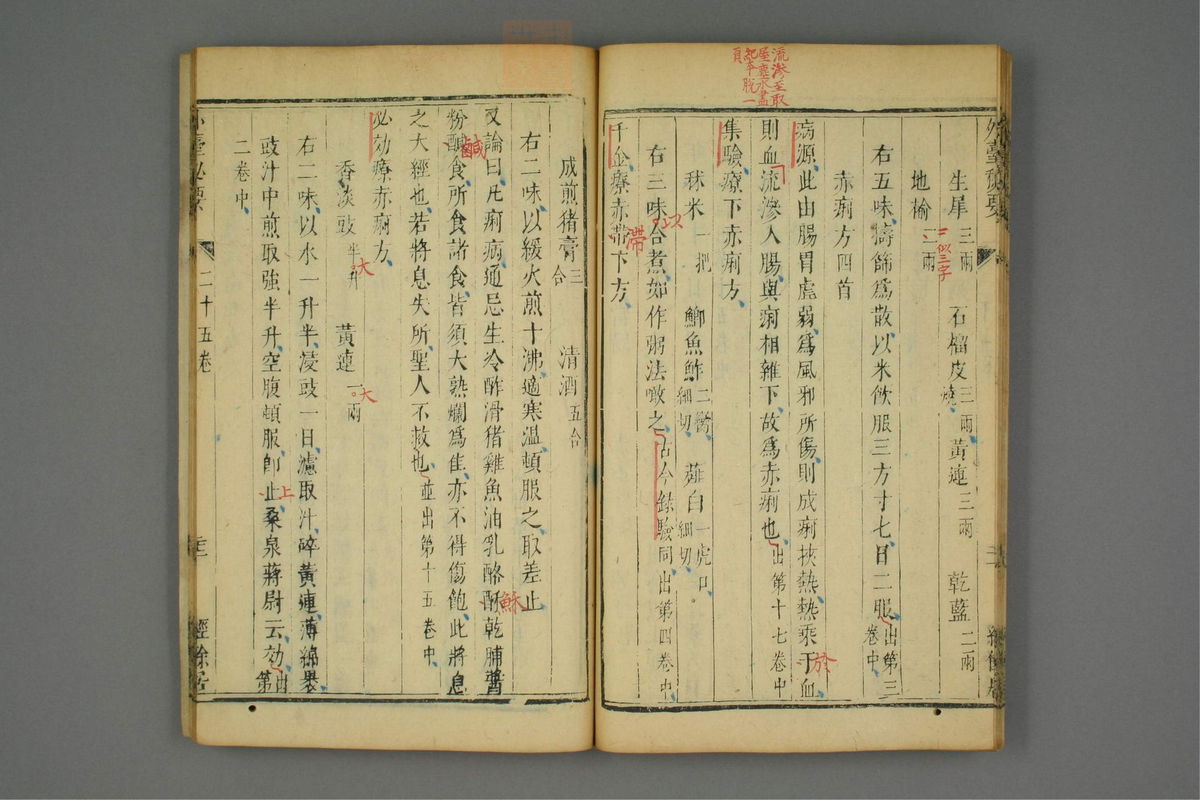 流滲至取
屋塵水盡
起本脫一
頁
外臺秘要
生犀三兩 石榴皮三兩燒 黃連三兩 乾藍二兩
地榆二兩
二似三字
右五味擣篩為散以米飲服三方寸匕日二服出第三卷中
赤痢方四首
病源此由腸胃虛弱為風邪所傷則成痢挾熱熱乘于血
於
則血流滲入腸與痢相雜下故為赤痢也出第十七卷中
集驗療下赤痢方
秫米一把 鯽魚鮓二臠細切 薤白一虎口細切
右三味合煮如作粥法噉之古今錄驗同出第四卷中
以
千金療赤帶下方
滯
成煎猪膏三合 清酒五合
右二味以緩火煎十沸適寒溫頓服之取差止
又論曰凡痢病通忌生冷酢滑猪雞魚油乳酪酥乾脯醬
穌
粉鹹食所食諸食皆須大熟爛為佳亦不得傷飽此將息
鹹
之大經也若將息失所聖人不救也並出第十五卷中
必効療赤痢方
香淡豉半升 黃連一兩
大
大
右二味以水一升半浸豉一日濾取汁碎黃連薄綿褁
豉汁中煎取強半升空腹頓服即止桑泉蔣尉云効出第
上
二卷中
外臺秘要
二十五卷
三
經餘居